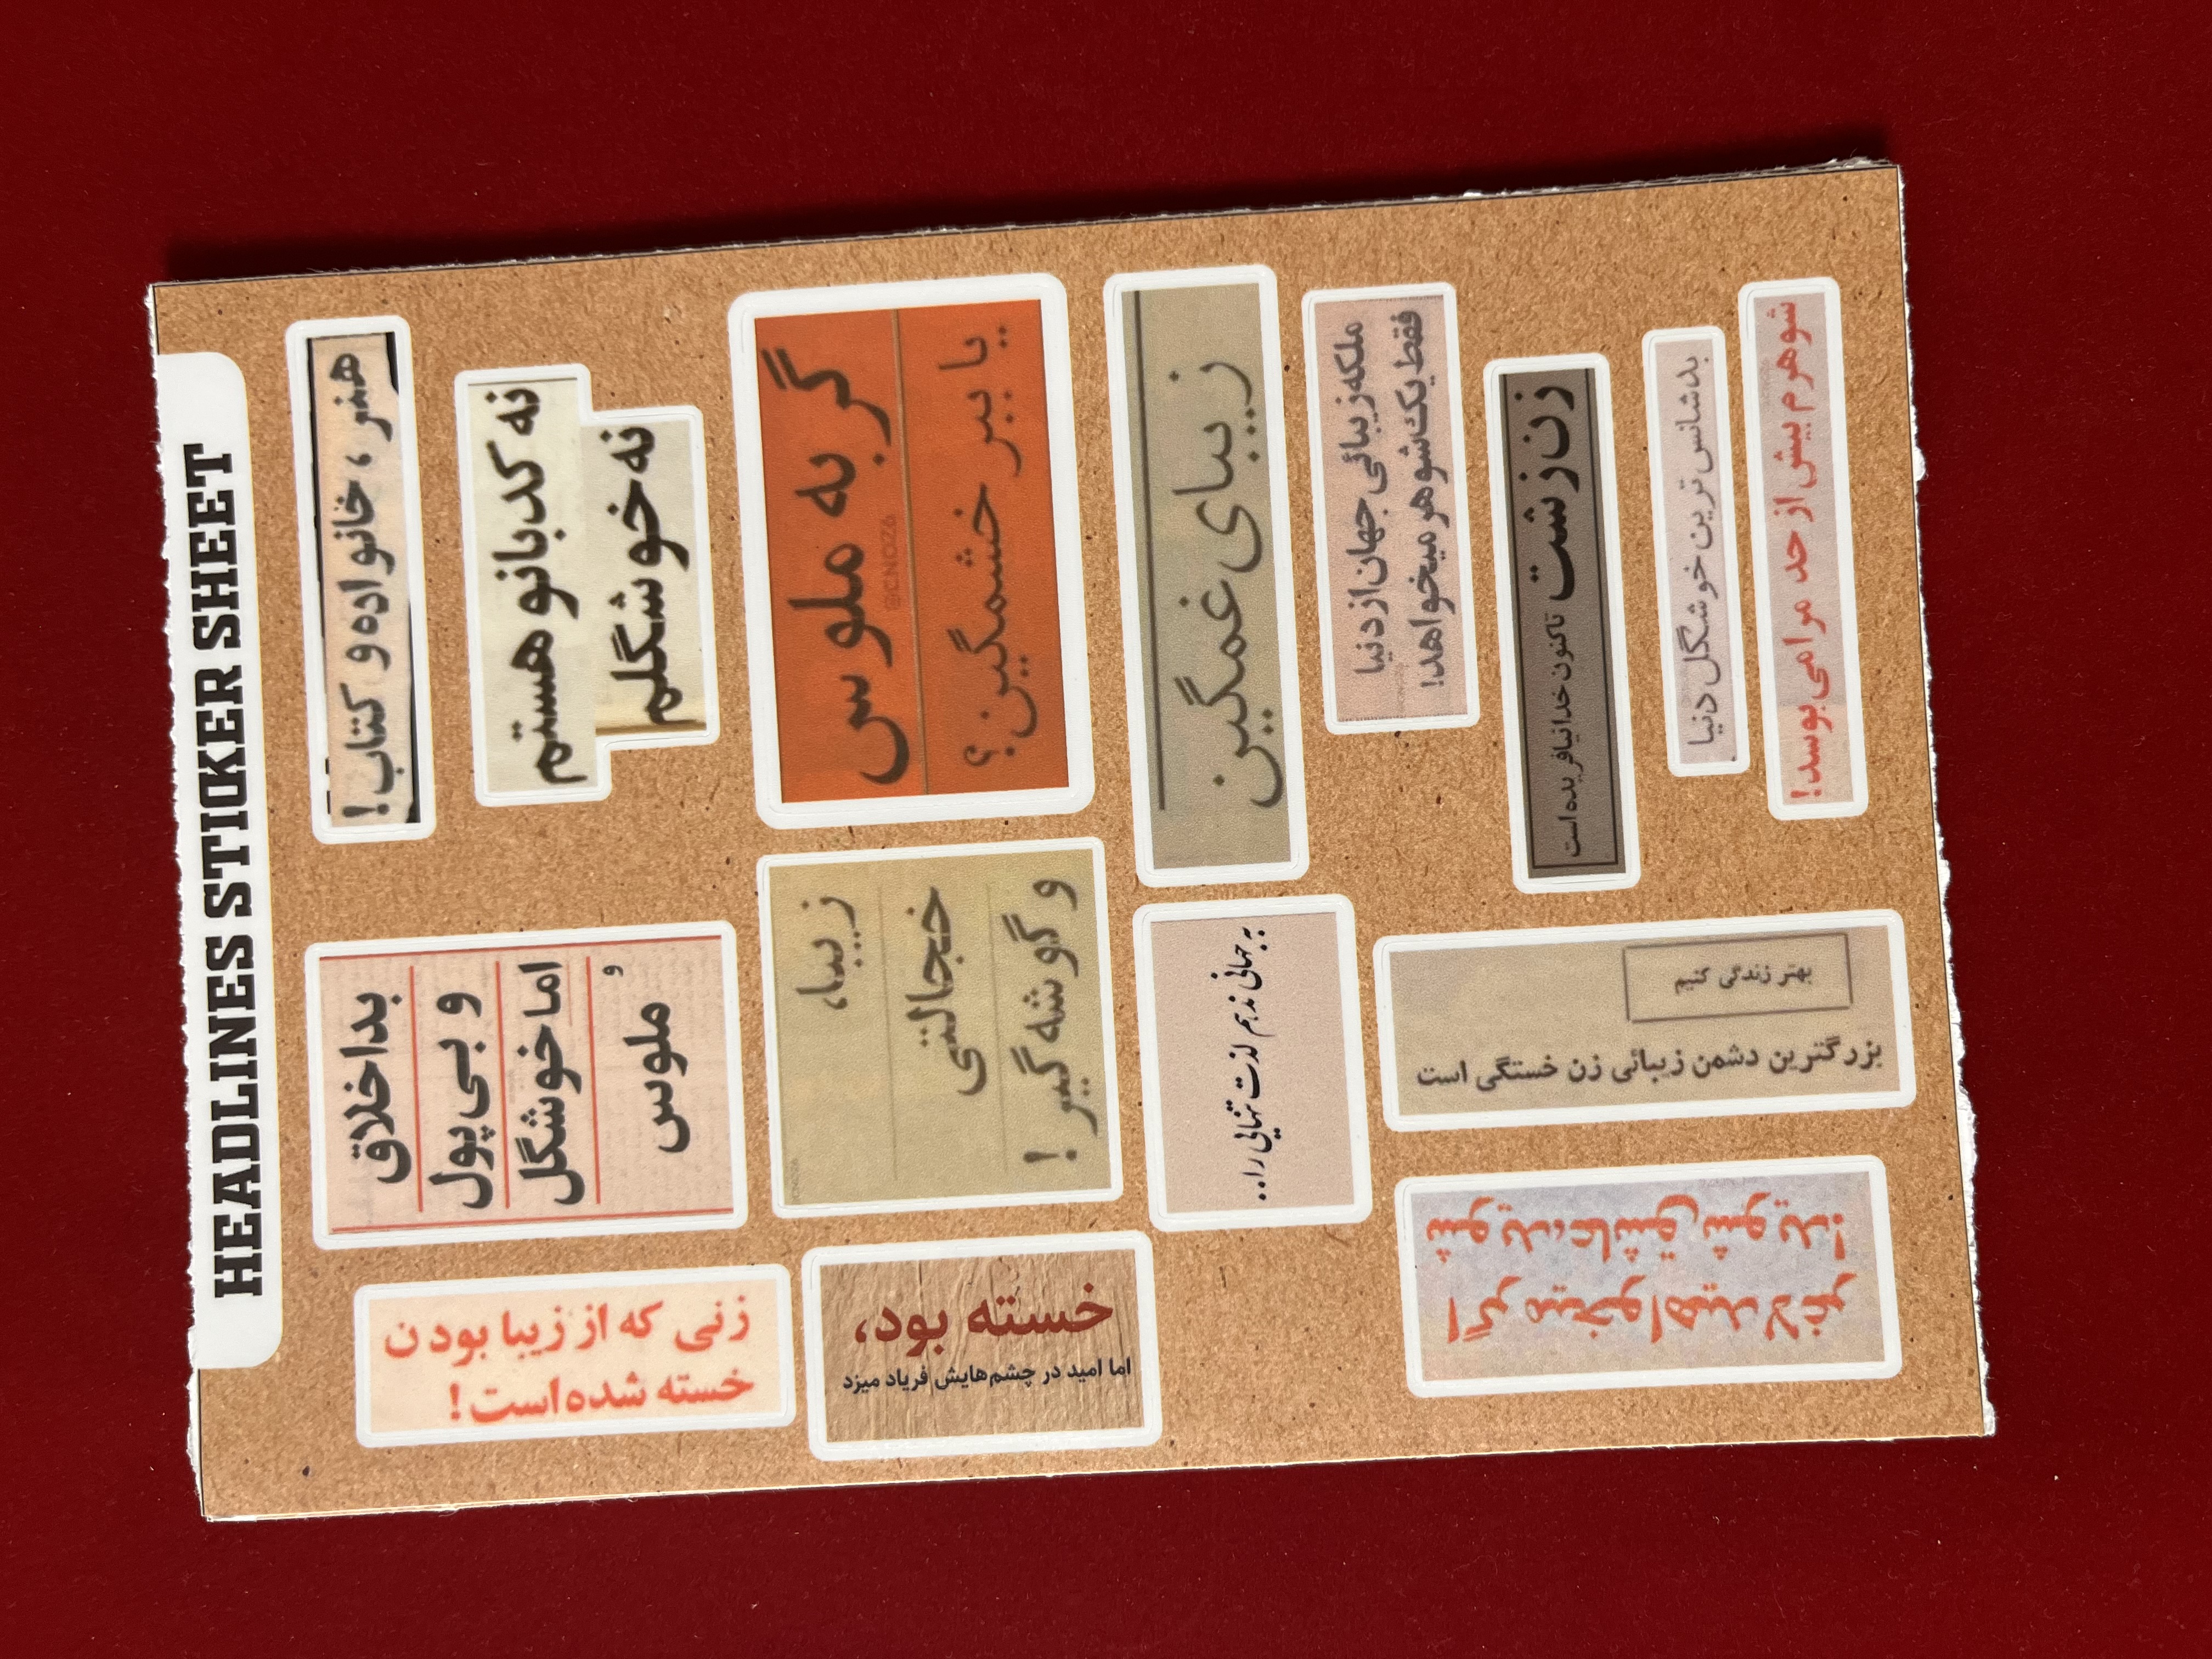 HEADLINES STICKER SHEET
هنر، خانواده و کتاب!
نه کدبانو هستم
نه خوشگلم
گربه ملوس
@CNDZ6
یا ببر خشمگین؟
زیبای غمگین
ملکه زیبائی جهان از دنیا
فقط یک شوهر میخواهد!
زن زشت تاکنون خدا نیافریده است
بدشانس ترین خوشگل دنیا
شوهرم بیش از حد مرا می بوسد!
بداخلاق
و بی پول
اما خوشگل
و
ملوس
زیبا،
خجالتی
و گوشه گیر!
به جهانی ندهم لذت تنهایی را..
بهتر زندگی کنیم
بزرگترین دشمن زیبائی زن خستگی است
زنی که از زیبا بودن
خسته شده است!
خسته بود،
اما امید در چشم‌هایش فریاد میزد
اگر میخواهید لاغر
شوید، عاشق شوید!